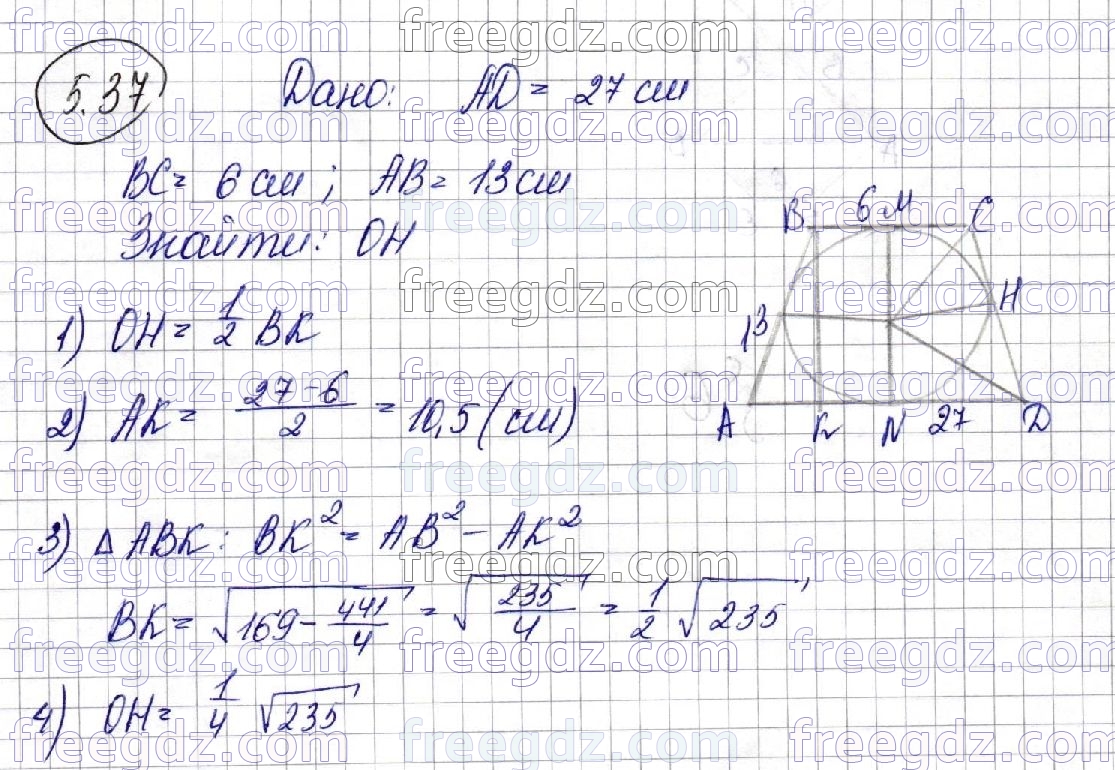 5.37
Дано: AD = 27 см
BC = 6 см; AB = 13 см
Знайти: OH
1) OH = 1/2 BK
2) AK = (27 - 6)/2 = 10,5 (см)
3) Δ ABK: BK² = AB² - AK²
BK = √(169 - 441/4) = √(235/4) = 1/2 √235
4) OH = 1/4 √235
B 6 M C
13 H
A K N 27 D
freegdz.com